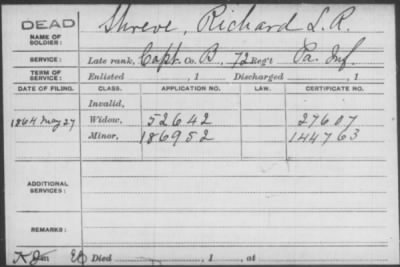 DEAD
NAME OF SOLDIER: Shreve, Richard L. R.
SERVICE: Late rank, Capt. Co. B, 72 Reg't Pa. Inf.
TERM OF SERVICE: Enlisted , 1 Discharged , 1
DATE OF FILING. CLASS. APPLICATION NO. LAW. CERTIFICATE NO.
Invalid,
1864 May 27 Widow, 52642 27607
Minor, 186952 144763
ADDITIONAL SERVICES:
REMARKS:
Died , 1 , at